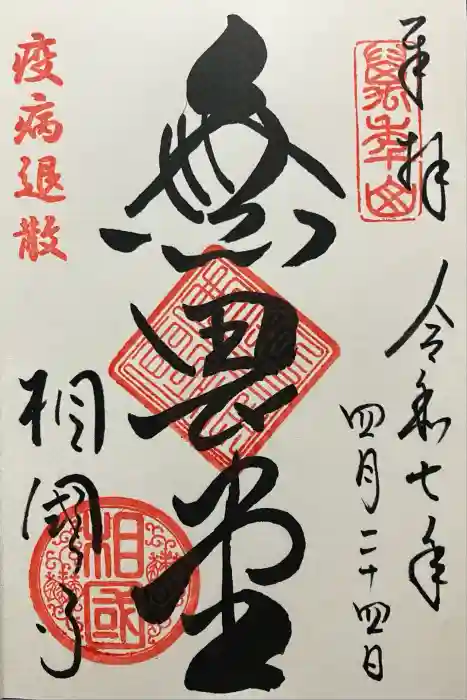 奉拝
萬年山
令和七年
四月二十四日
無畏堂
疫病退散
相國寺
相國